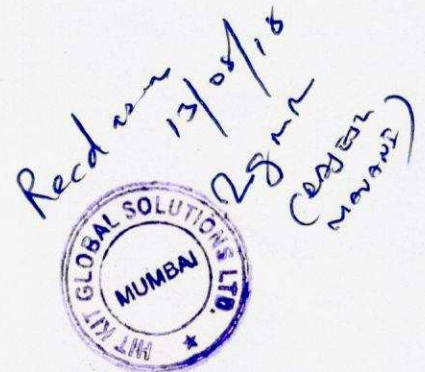 Recd on
13/08/18
(RAJESH
MAVANI)
HIT KIT GLOBAL SOLUTIONS LTD.
MUMBAI